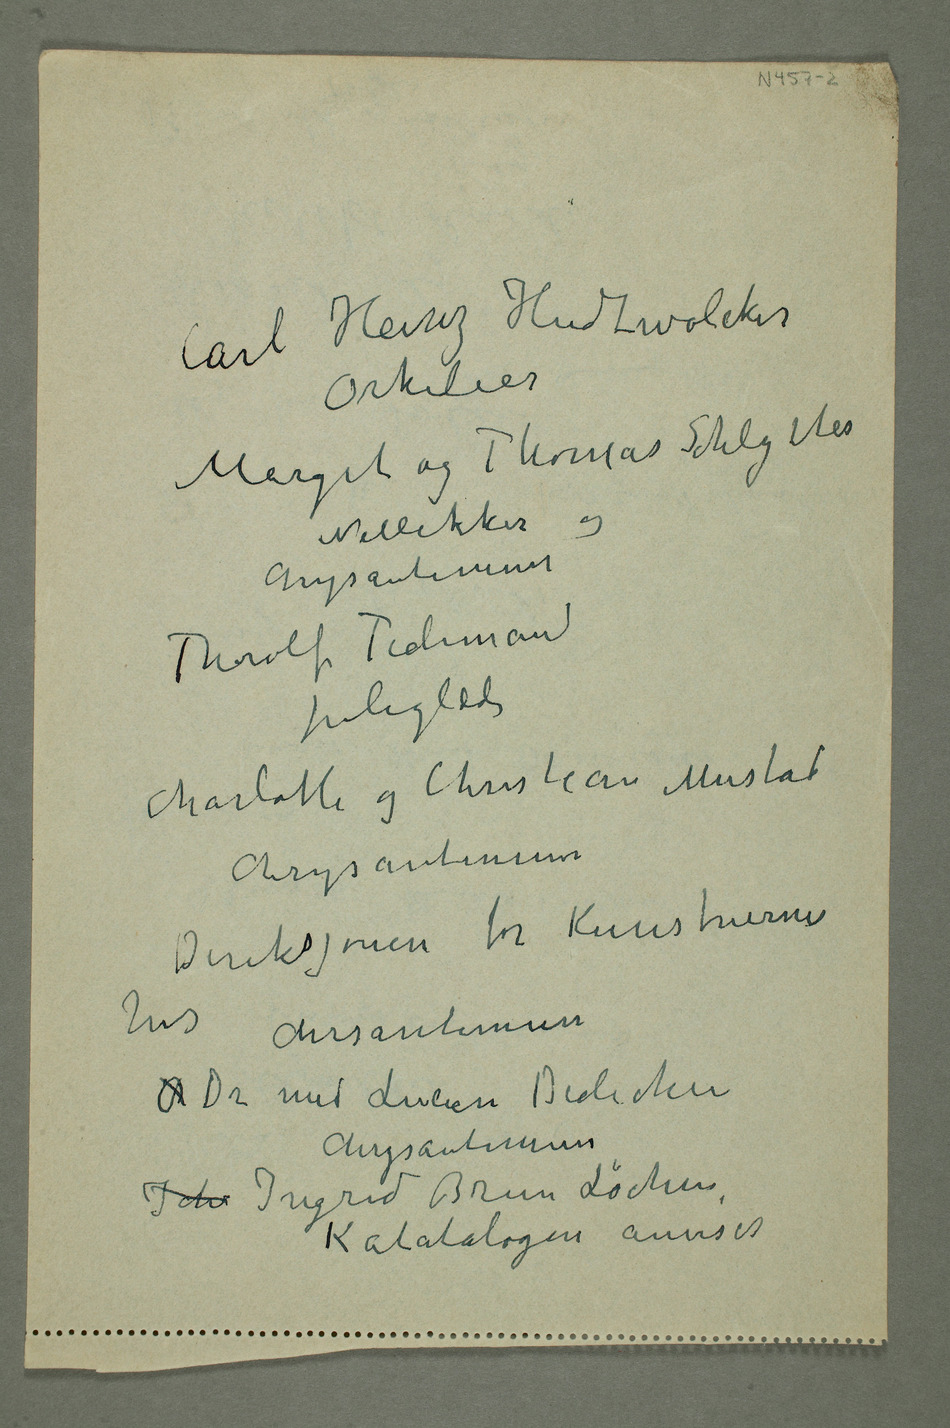 N457-2
Carl Heinz Hudtwolcker
Orkileer
Margit og Thomas Schlyttes
Nellikker og
Chrysantemum
Thorolf Tidemand
juleglæde
Charlotte og Christian Mustad
Chrysantemum
Direksjonen for Kunstnernes
hus chrsantemum
Dr med Lucien Dedichen
Chrysantemum
Ingrid Brun Löchen,
Katatalogen